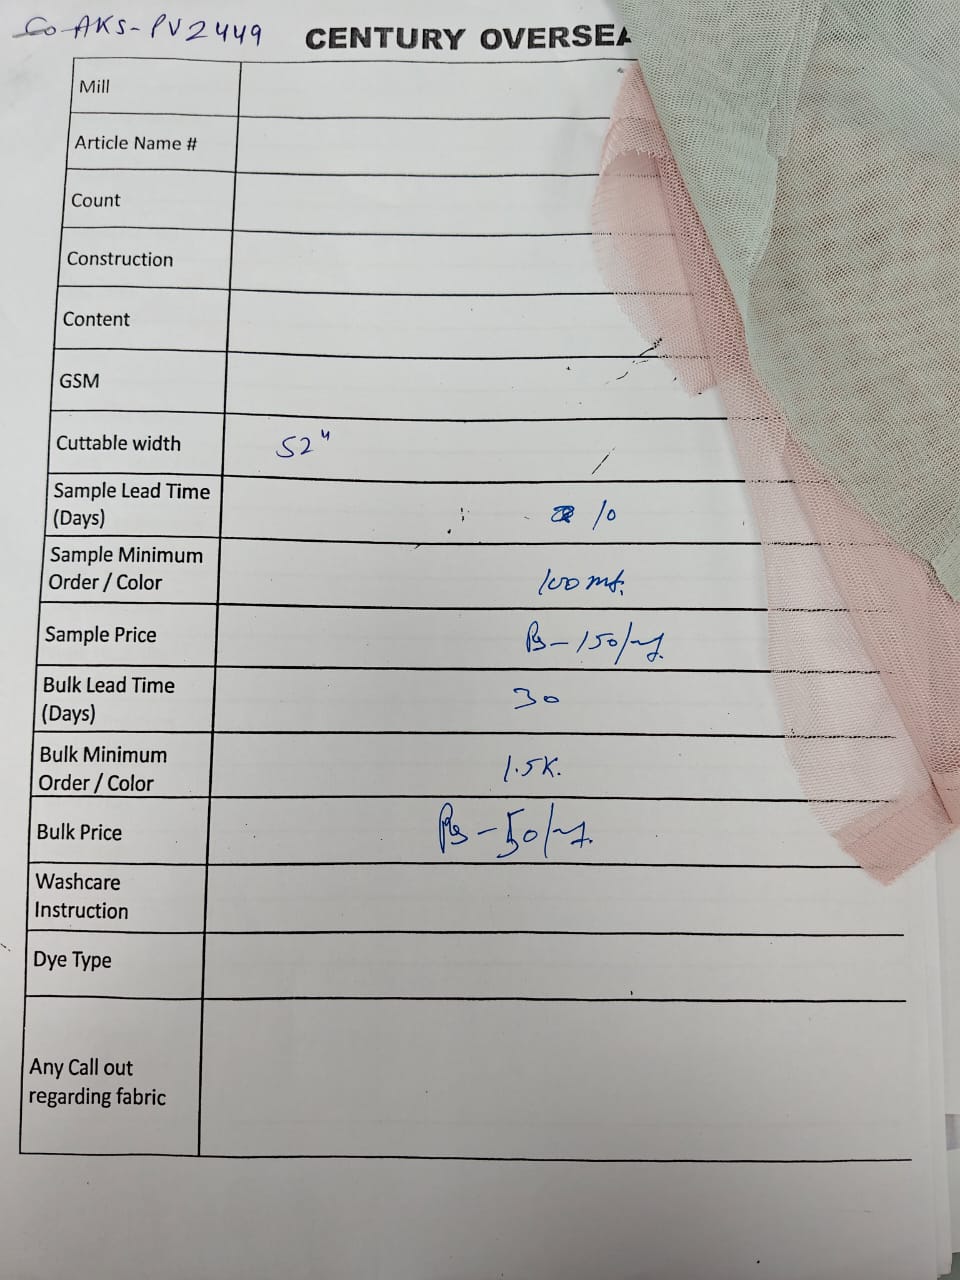 Co-AKS-PV2449
CENTURY OVERSEA
Mill
Article Name #
Count
Construction
Content
GSM
Cuttable width 52"
Sample Lead Time
(Days) 10
Sample Minimum
Order / Color 100 mt.
Sample Price Rs-150/-
Bulk Lead Time
(Days) 30
Bulk Minimum
Order / Color 1.5K.
Bulk Price Rs-50/-
Washcare
Instruction
Dye Type
Any Call out
regarding fabric